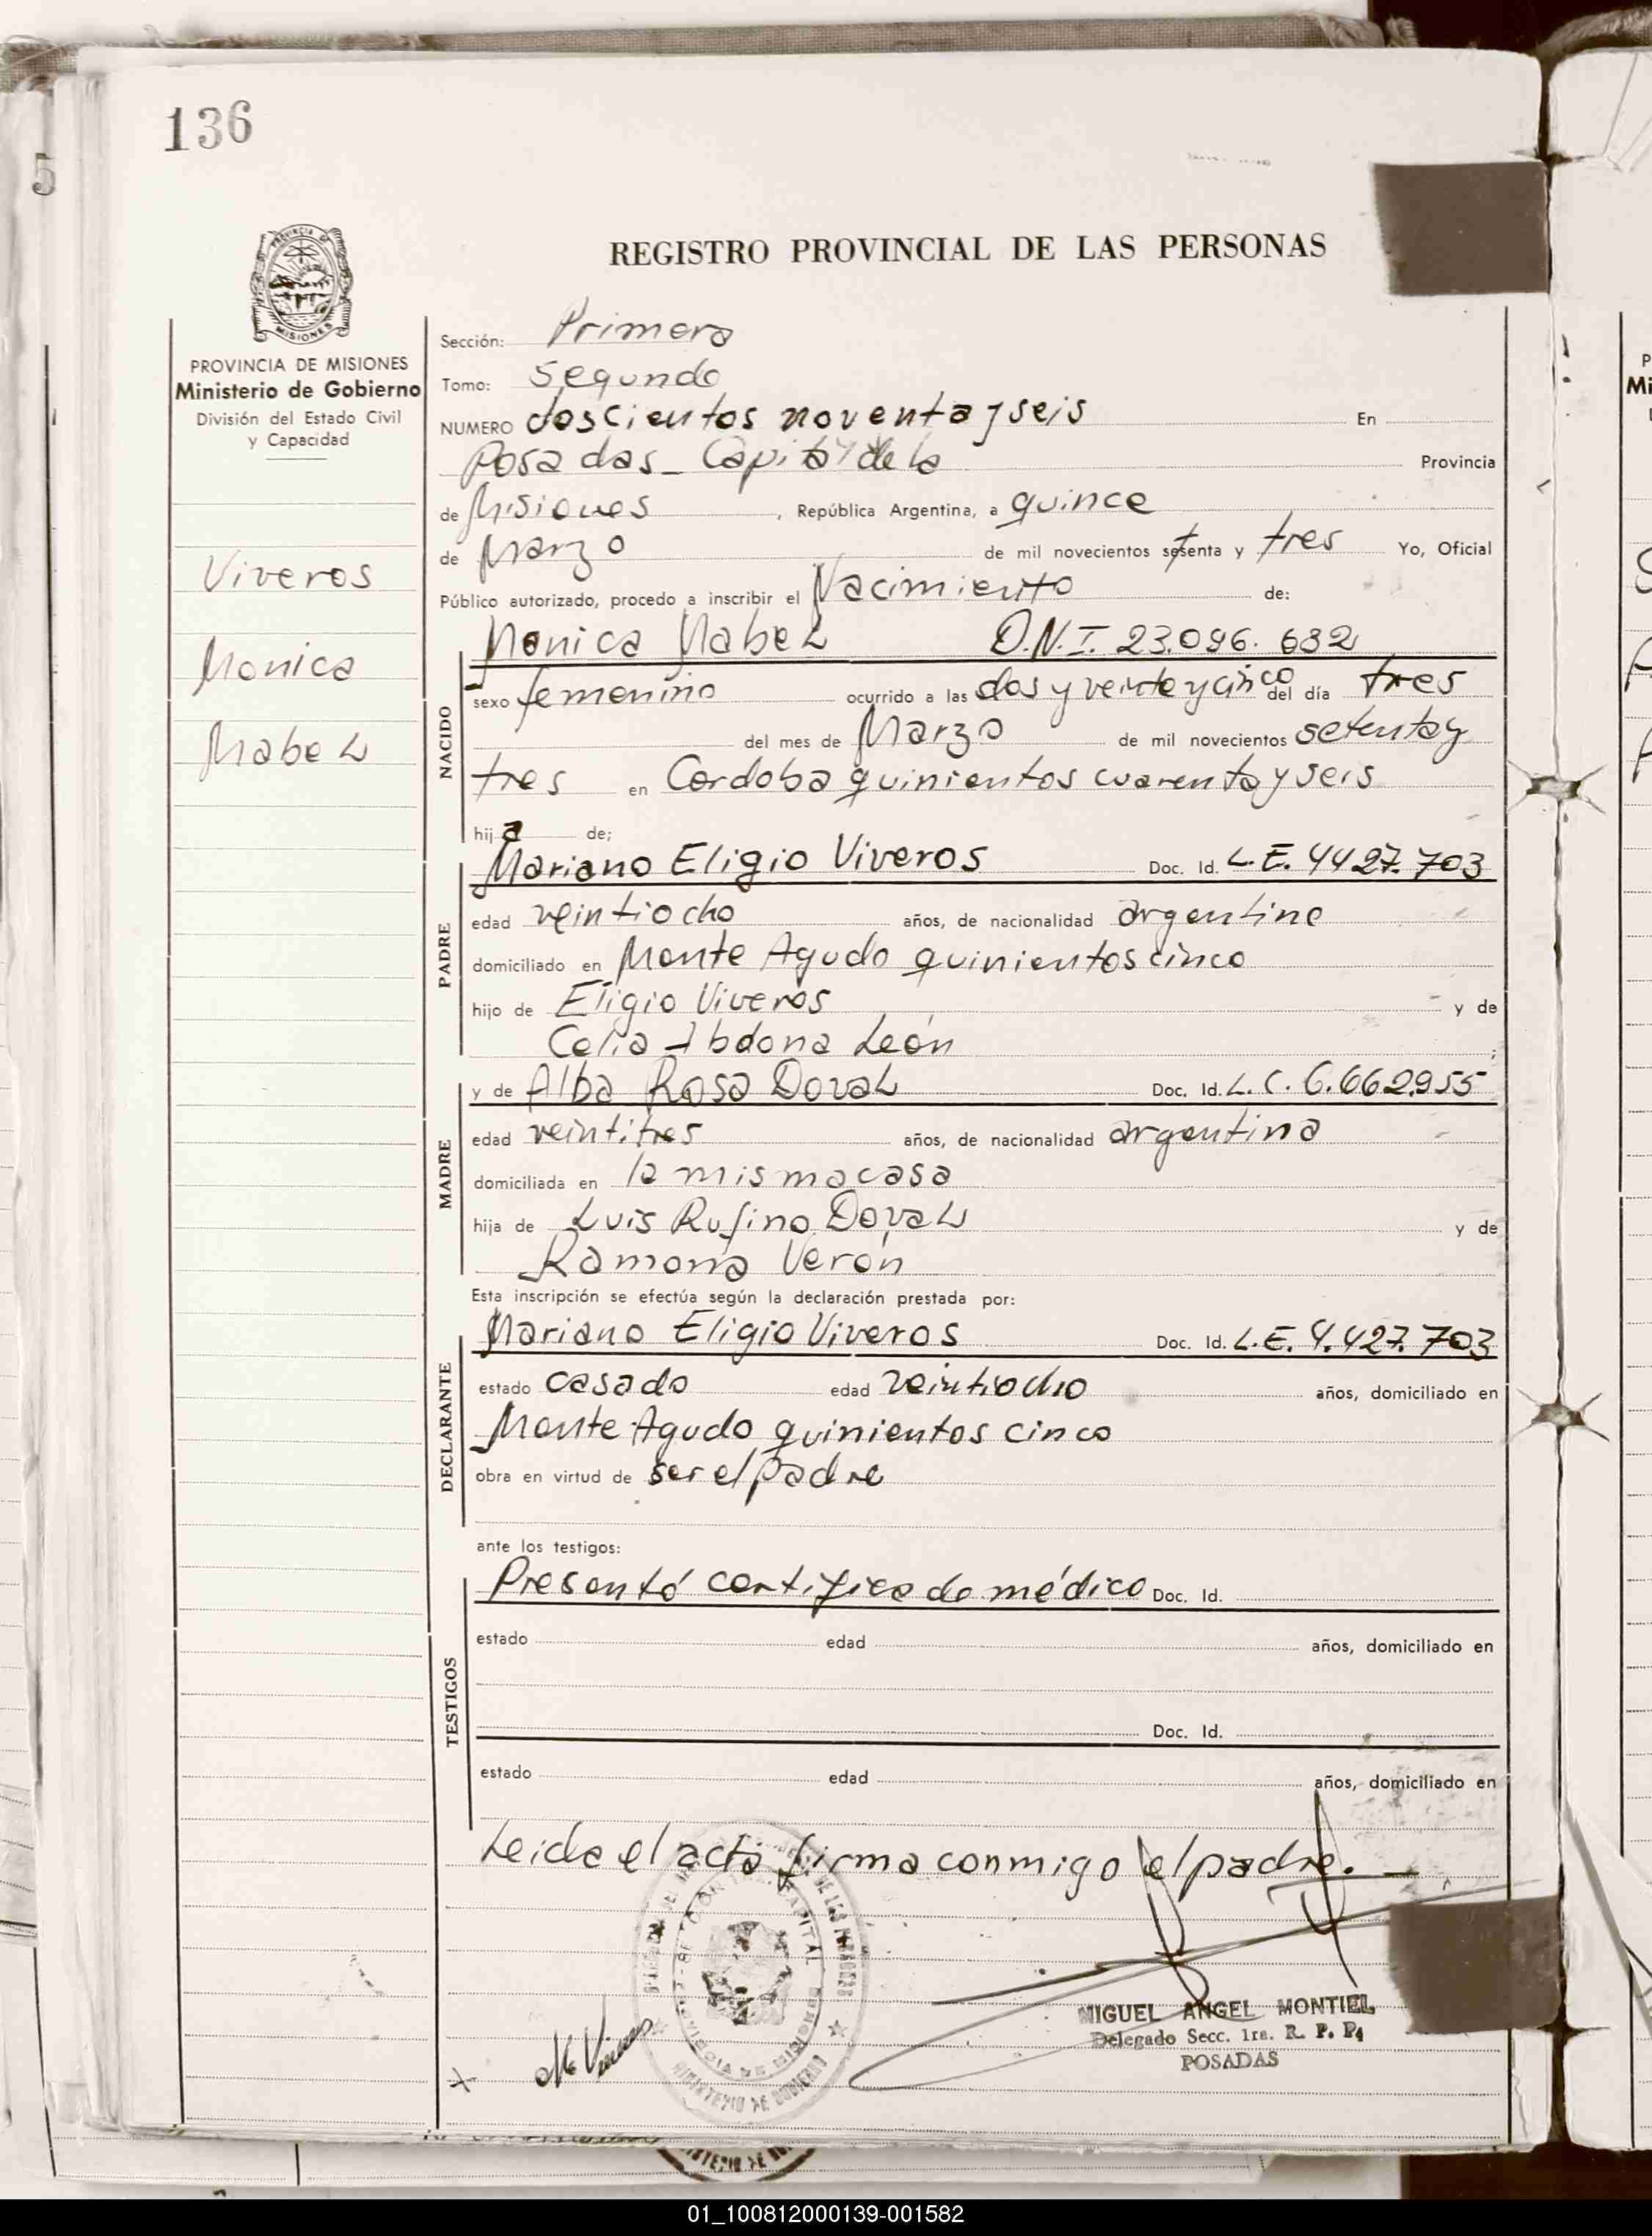 136
5
REGISTRO PROVINCIAL DE LAS PERSONAS
PROVINCIA DE MISIONES
Ministerio de Gobierno
División del Estado Civil
y Capacidad
Viveros
Monica
Mabel
Sección: Primera
Tomo: Segundo
NUMERO doscientos noventa y seis En
Posadas - Capital de la Provincia
de Misiones, República Argentina, a quince
de Marzo de mil novecientos setenta y tres Yo, Oficial
Público autorizado, procedo a inscribir el Nacimiento de:
Monica Mabel D.N.I. 23.096.632
NACIDO
sexo femenino ocurrido a las dos y veinte y cinco del día tres
del mes de Marzo de mil novecientos setenta y
tres en Cordoba quinientos cuarenta y seis
hija de;
PADRE
Mariano Eligio Viveros Doc. Id. L.E. 4427.703
edad veintiocho años, de nacionalidad argentino
domiciliado en Monte Agudo quinientos cinco
hijo de Eligio Viveros y de
Celia Abdona León
MADRE
y de Alba Rosa Doval Doc. Id. L.C. 6.662.955
edad veintitres años, de nacionalidad argentina
domiciliada en la misma casa
hija de Luis Rufino Doval y de
Ramona Verón
Esta inscripción se efectúa según la declaración prestada por:
DECLARANTE
Mariano Eligio Viveros Doc. Id. L.E. 4.427.703
estado casado edad veintiocho años, domiciliado en
Monte Agudo quinientos cinco
obra en virtud de ser el padre
ante los testigos:
TESTIGOS
Presentó certificado médico Doc. Id.
estado edad años, domiciliado en
Doc. Id.
estado edad años, domiciliado en
Leida el acta firma conmigo el padre.
MIGUEL ANGEL MONTIEL
Delegado Secc. 1ra. R. P. P.
POSADAS
MINISTERIO DE GOBIERNO
01_100812000139-001582